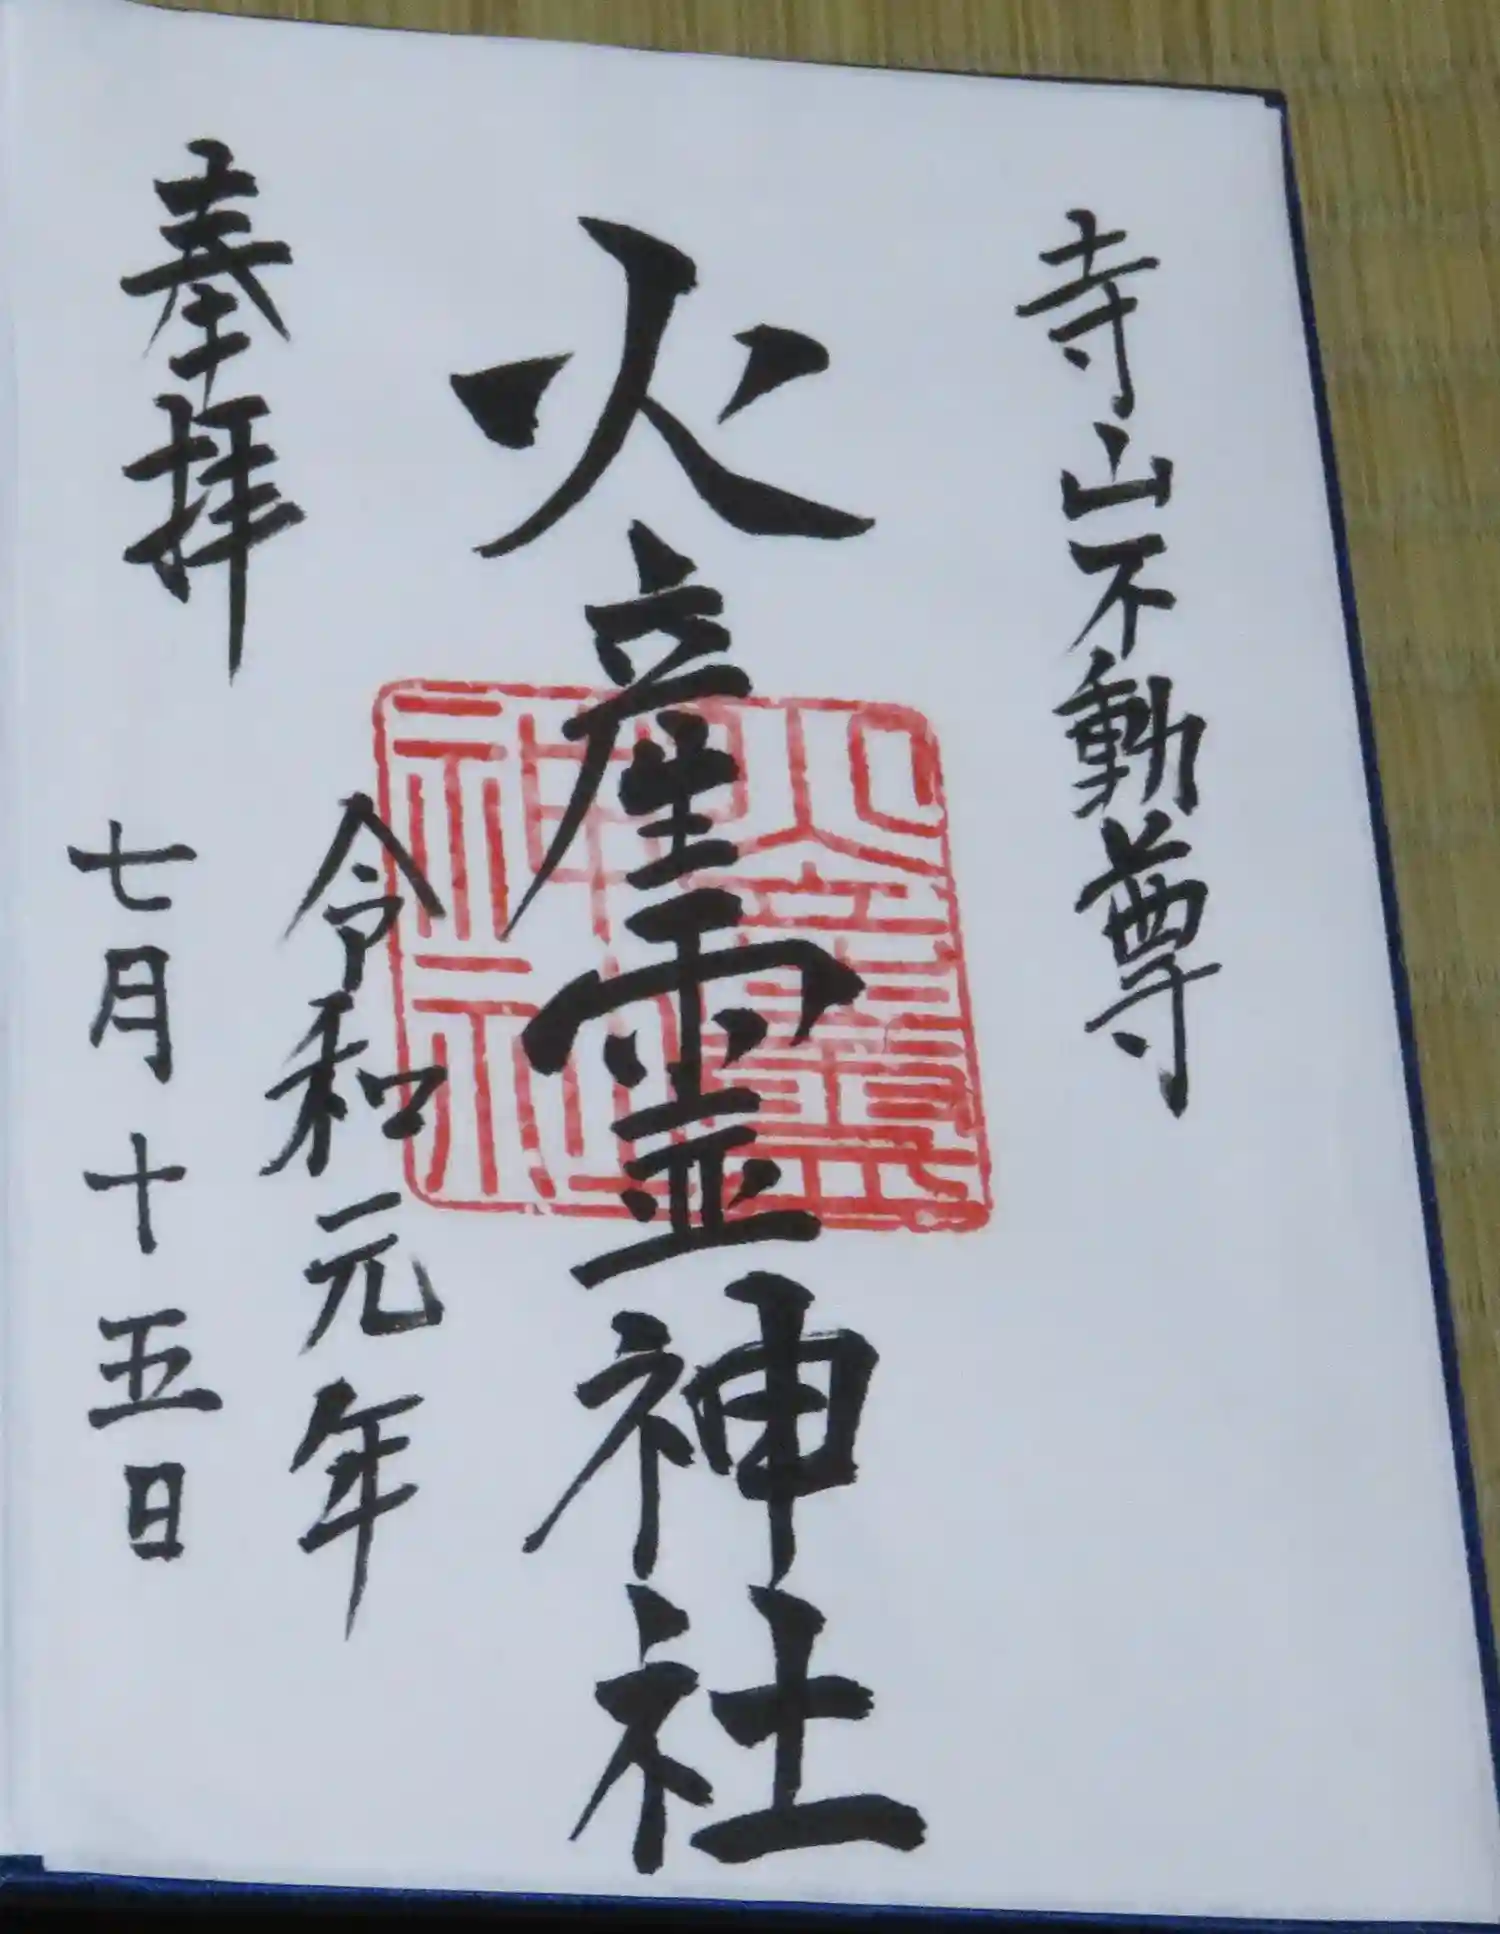 寺山不動尊
火産霊神社
火産霊
神社
奉拝
令和元年
七月十五日